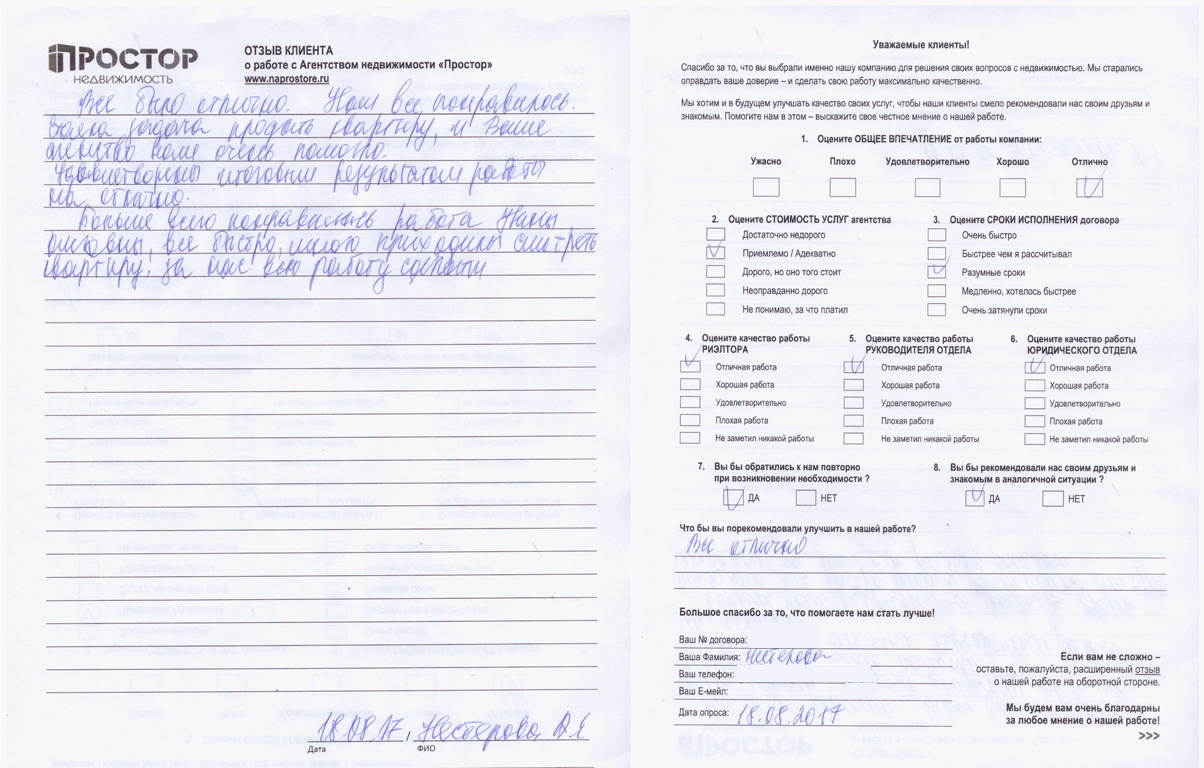 ПРОСТОР
НЕДВИЖИМОСТЬ
ОТЗЫВ КЛИЕНТА
о работе с Агентством недвижимости «Простор»
www.naprostore.ru
Все было отлично. Нам все понравилось.
Была задача продать квартиру, и Ваше
агентство нам очень помогло.
Удовлетворены итоговым результатом работы
на отлично.
Больше всего понравилась работа Яны
Все быстро, много приходили смотреть
квартиру, за нас всю работу сделали
18.08.17, Нестерова А.Е
Дата ФИО
Уважаемые клиенты!
Спасибо за то, что вы выбрали именно нашу компанию для решения своих вопросов с недвижимостью. Мы старались
оправдать ваше доверие – и сделать свою работу максимально качественно.
Мы хотим и в будущем улучшать качество своих услуг, чтобы наши клиенты смело рекомендовали нас своим друзьям и
знакомым. Помогите нам в этом – выскажите свое честное мнение о нашей работе.
1. Оцените ОБЩЕЕ ВПЕЧАТЛЕНИЕ от работы компании:
Ужасно Плохо Удовлетворительно Хорошо Отлично
2. Оцените СТОИМОСТЬ УСЛУГ агентства
Достаточно недорого
Приемлемо / Адекватно
Дорого, но оно того стоит
Неоправданно дорого
Не понимаю, за что платил
3. Оцените СРОКИ ИСПОЛНЕНИЯ договора
Очень быстро
Быстрее чем я рассчитывал
Разумные сроки
Медленно, хотелось быстрее
Очень затянули сроки
4. Оцените качество работы
РИЭЛТОРА
Отличная работа
Хорошая работа
Удовлетворительно
Плохая работа
Не заметил никакой работы
5. Оцените качество работы
РУКОВОДИТЕЛЯ ОТДЕЛА
Отличная работа
Хорошая работа
Удовлетворительно
Плохая работа
Не заметил никакой работы
6. Оцените качество работы
ЮРИДИЧЕСКОГО ОТДЕЛА
Отличная работа
Хорошая работа
Удовлетворительно
Плохая работа
Не заметил никакой работы
7. Вы бы обратились к нам повторно
при возникновении необходимости ?
ДА НЕТ
8. Вы бы рекомендовали нас своим друзьям и
знакомым в аналогичной ситуации ?
ДА НЕТ
Что бы вы порекомендовали улучшить в нашей работе?
Все отлично
Большое спасибо за то, что помогаете нам стать лучше!
Ваш № договора:
Ваша Фамилия: Нестерова
Ваш телефон:
Ваш Е-мейл:
Дата опроса: 18.08.2017
Если вам не сложно –
оставьте, пожалуйста, расширенный отзыв
о нашей работе на оборотной стороне.
Мы будем вам очень благодарны
за любое мнение о нашей работе!
>>>